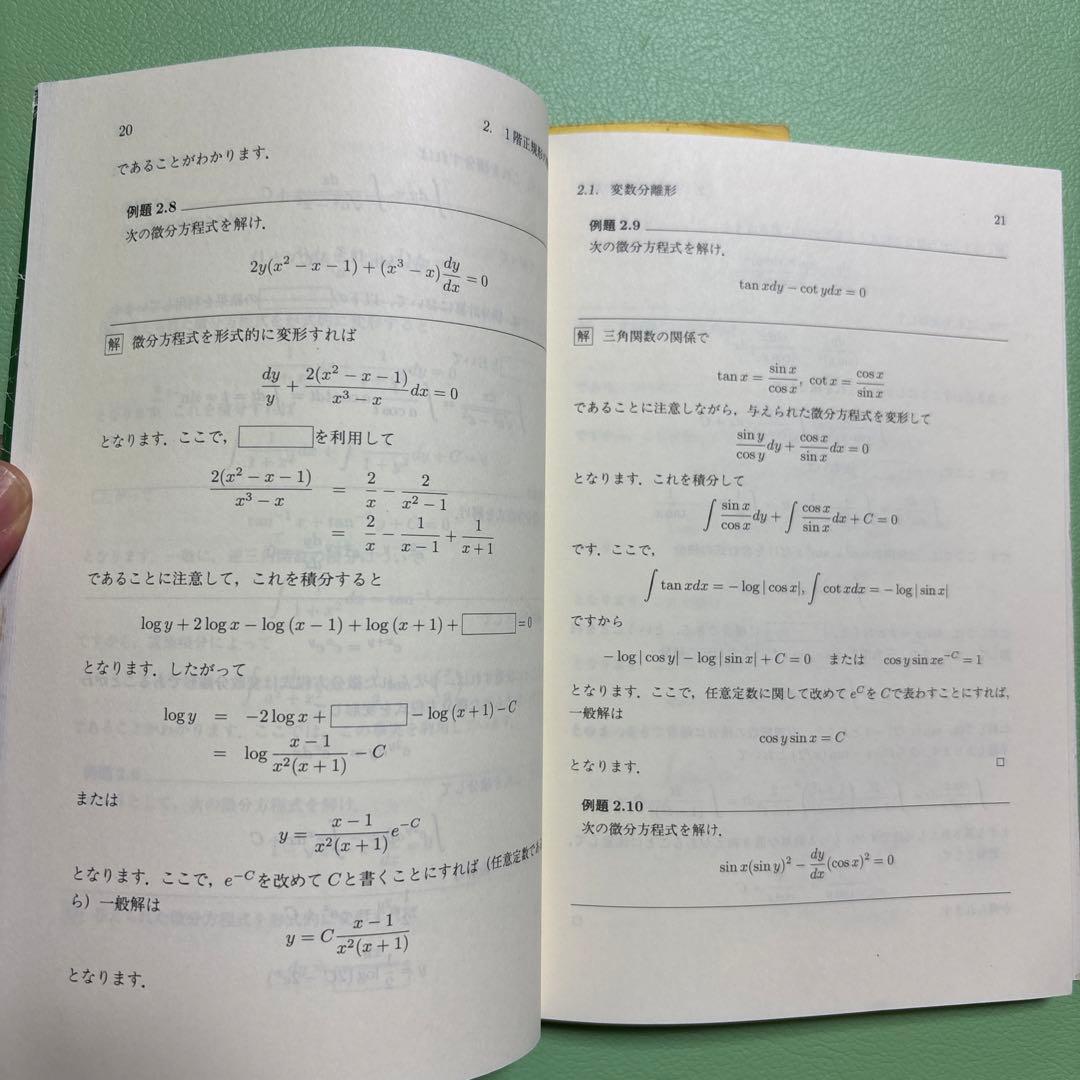 20
2. 1階正規形
であることがわかります.
例題 2.8
次の微分方程式を解け.
2y(x² − x − 1) + (x³ − x)dy/dx = 0
解 微分方程式を形式的に変形すれば
dy/y + 2(x² − x − 1)/(x³ − x) dx = 0
となります. ここで, を利用して
2(x² − x − 1)/(x³ − x) = 2/x − 2/(x² − 1)
= 2/x − 1/(x − 1) + 1/(x + 1)
であることに注意して, これを積分すると
log y + 2 log x − log (x − 1) + log (x + 1) + = 0
となります. したがって
log y = −2 log x + − log (x + 1) − C
= log (x − 1)/(x²(x + 1)) − C
または
y = (x − 1)/(x²(x + 1)) e^{−C}
となります. ここで, e^{−C}を改めて C と書くことにすれば (任意定数であ
ら) 一般解は
y = C (x − 1)/(x²(x + 1))
となります.
2.1. 変数分離形
21
例題 2.9
次の微分方程式を解け.
tan xdy − cot ydx = 0
解 三角関数の関係で
tan x = sin x/cos x, cot x = cos x/sin x
であることに注意しながら, 与えられた微分方程式を変形して
sin y/cos y dy + cos x/sin x dx = 0
となります. これを積分して
∫ sin x/cos x dy + ∫ cos x/sin x dx + C = 0
です. ここで,
∫ tan xdx = − log | cos x|, ∫ cot xdx = − log | sin x|
ですから
− log | cos y| − log | sin x| + C = 0 または cos y sin xe^{−C} = 1
となります. ここで, 任意定数に関して改めて e^C を C で表わすことにすれば,
一般解は
cos y sin x = C
となります. □
例題 2.10
次の微分方程式を解け.
sin x(sin y)² − dy/dx (cos x)² = 0